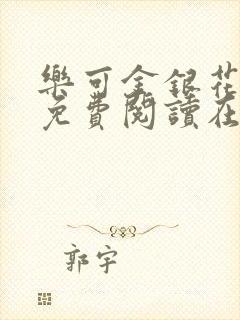 樂可金銀花
免費閱讀在
郭宇